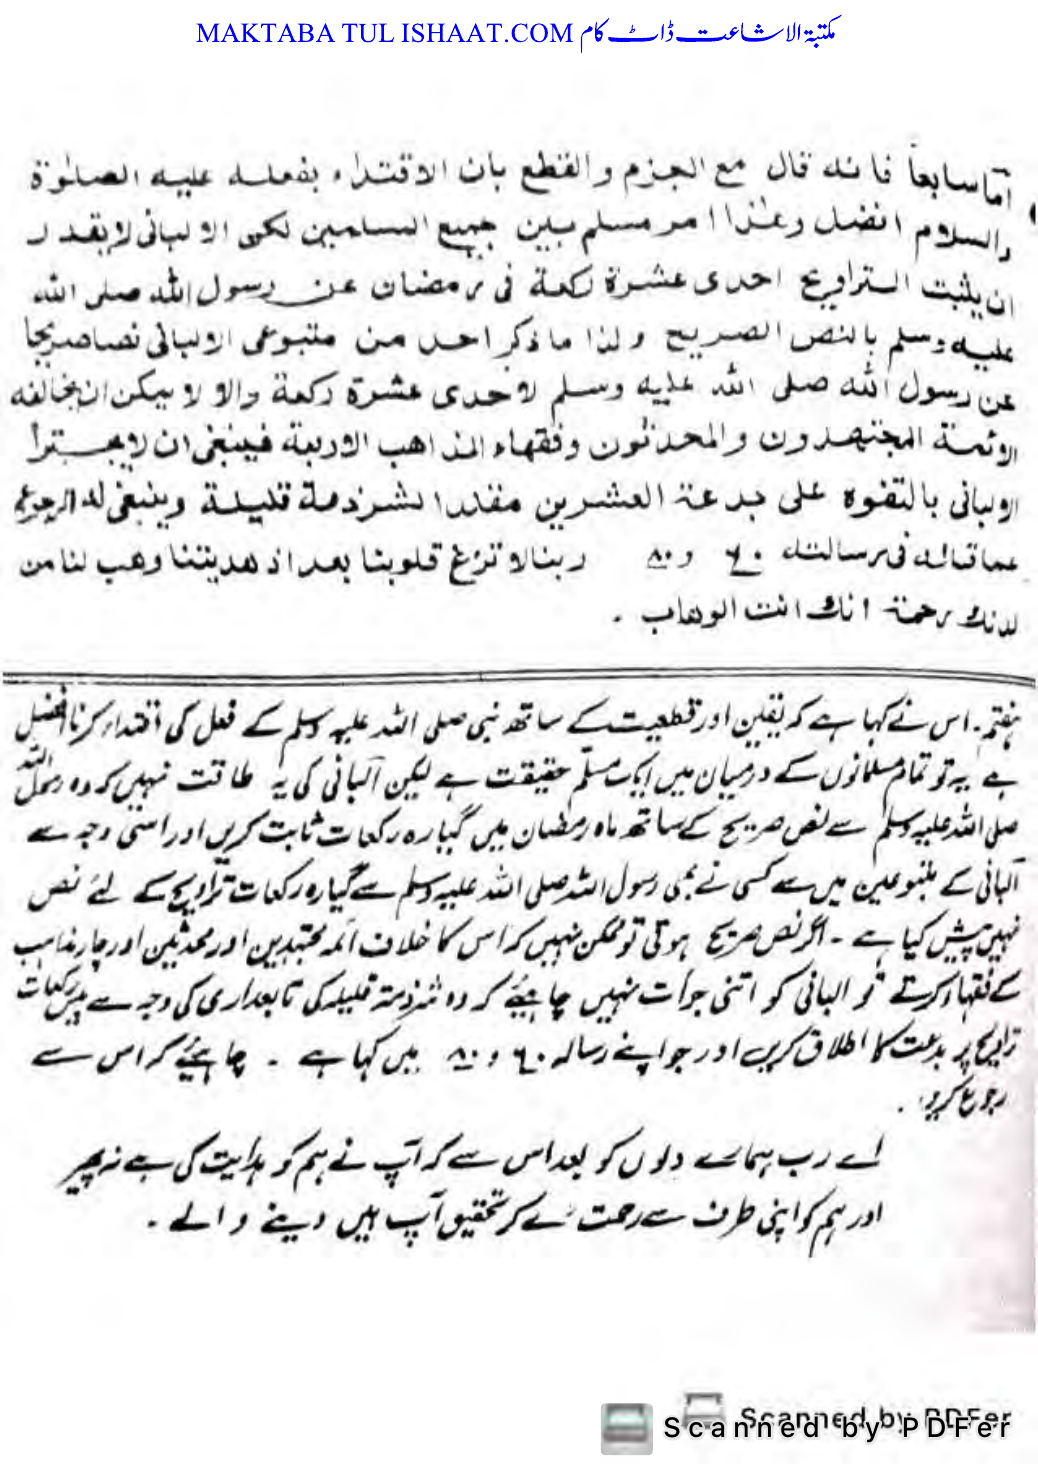 MAKTABA TUL ISHAAT.COM مکتبۃ الاشاعت ڈاٹ کام
اما سابعاً فانه قال مع الجزم والقطع بان الاقتداء بفعله عليه الصلوٰة
والسلام افضل وهٰذا امر مسلم بين جميع المسلمين لكن الالبانى لا يقدر
ان يثبت التراويح احدى عشرة ركعة فى رمضان عن رسول الله صلى الله
عليه وسلم بالنص الصريح ولذا ما ذكر احد من متبوعى الالبانى نصا صريحا
عن رسول الله صلى الله عليه وسلم لاحدى عشرة ركعة والا لا يمكن ان يخالفه
الائمة المجتهدون والمحدثون وفقهاء المذاهب الاربعة فينبغى ان لا يجترأ
الالبانى بالتفوه على بدعة العشرين مقلدا لشرذمة قليلة وينبغى له الرجوع
عما قاله فى رسالته ٦٠ و ٨٠ ربنا لا تزغ قلوبنا بعد اذ هديتنا وهب لنا من
لدنك رحمة انك انت الوهاب .
ہفتم ۔ اس نے کہا ہے کہ یقین اور قطعیت کے ساتھ نبی صلی اللہ علیہ وسلم کے فعل کی اقتداء کرنا افضل
ہے یہ تو تمام مسلمانوں کے درمیان میں ایک مسلّم حقیقت ہے لیکن البانی کی یہ طاقت نہیں کہ وہ رسول اللہ
صلی اللہ علیہ وسلم سے نص صریح کے ساتھ ماہ رمضان میں گیارہ رکعات ثابت کریں اور اسی وجہ سے
البانی کے متبوعین میں سے کسی نے بھی رسول اللہ صلی اللہ علیہ وسلم سے گیارہ رکعات تراویح کے لئے نص
نہیں پیش کیا ہے ۔ اگر نص صریح ہوتی تو ممکن نہیں کہ اس کا خلاف ائمہ مجتہدین اور محدثین اور چار مذاہب
کے فقہاء کرتے تو البانی کو اتنی جرأت نہیں چاہیئے کہ وہ شرذمۃ قلیلہ کی تابعداری کی وجہ سے بیس رکعات
تراویح پر بدعت کا اطلاق کریں اور جو اپنے رسالہ ٦٠ و ٨٠ میں کہا ہے ۔ چاہیئے کہ اس سے
رجوع کرے .
اے رب ہمارے دلوں کو بعد اس سے کہ آپ نے ہم کو ہدایت کی ہے نہ پھیر
اور ہم کو اپنی طرف سے رحمت دے کر تحقیق آپ ہیں دینے والے ۔
Scanned by PDFer
Scanned by PDFer